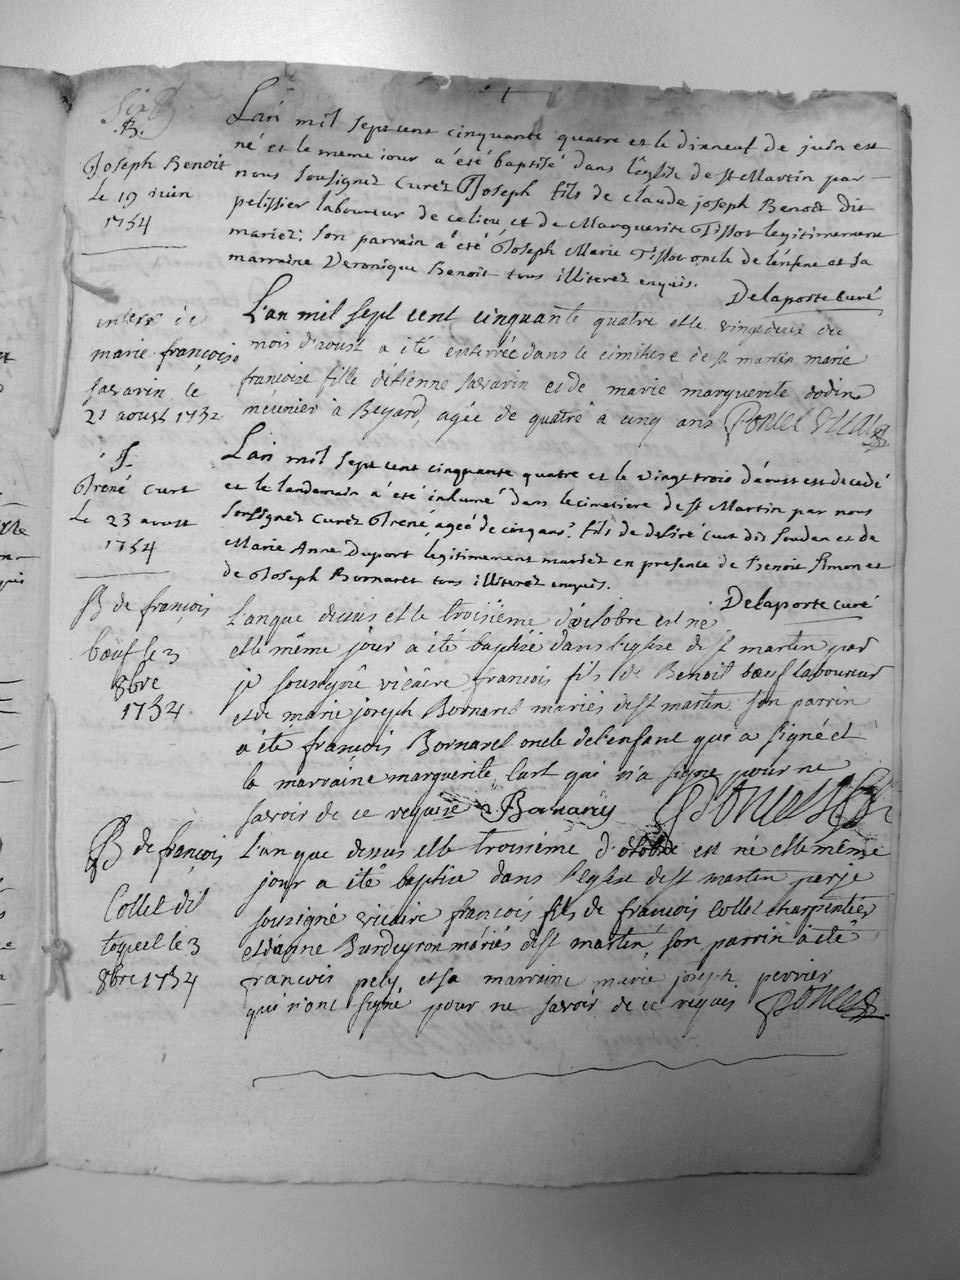 B.
Joseph Benoit
Le 19 juin
1754
L'an mil sept cent cinquante quatre et le dixneuf de juin est
né et le meme jour à été baptisé dans l'église de st Martin par
nous soussignez Curez Joseph fils de claude joseph Benoit dit
pelissier laboureur de ce lieu et de Marguerite Tissot legitimement
mariez; son parrain à été Joseph Marie Tissot oncle de l'enfent et sa
marraine Veronique Benoit tous illiterez enquis.
Delaporte curé
enterr de
marie françoise
savarin le
21 aoust 1754
L'an mil sept cent cinquante quatre et le vingt deux du
mois d'aoust a été enterrée dans le cimitiere de st martin marie
françoise fille d'etienne savarin et de marie marguerite dodin
meunier à Beyard, agée de quatre a cinq ans Poncet vicaire
f.
René Curt
Le 23 aoust
1754
L'an mil sept cent cinquante quatre et le vingt trois d'aoust est decedé
et le landemain à été inhumé dans le cimetiere de st Martin par nous
soussignez Curez René, ageé de cinq ans; fils de desiré Curt dit Soudan et de
Marie Anne Duport legitimement mariez en presence de Benoit Simon et
de Joseph Bornaret tous illiterez enquis.
Delaporte curé
B de françois
bœuf le 3
8bre
1754
L'an que dessus et le troisième d'octobre est né
et le même jour a été baptizé dans l'eglise de st martin par
je soussigné vicaire françois fils de Benoit bœuf laboureur
et de marie joseph Bornarel mariés de st martin son parrin
a été françois Bornarel oncle de l'enfant qui a signé et
la marraine marguerite Curt qui n'a signé pour ne
savoir de ce requise
B de françois
Collet dit
toquet le 3
8bre 1754
L'an que dessus et le troisième d'octobre est né et le même
jour a été baptizé dans l'eglise de st martin par je
soussigné vicaire françois fils de françois Collet charpentier
et d'anne Burdeyron mariés de st martin, son parrin à été
françois pely, et sa marraine marie joseph perrier
qui n'ont signé pour ne savoir de ce requis. Poncet